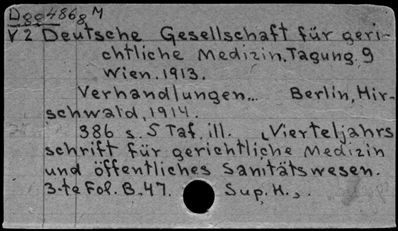 Dgg4868M
V2 Deutsche Gesellschaft für geri-
chtliche Medizin. Tagung 9
Wien. 1913.
Verhandlungen... Berlin, Hir-
schwald, 1914.
386 s. 5 Taf. ill. (Vierteljahrs
schrift für gerichtliche Medizin
und öffentliches Sanitätswesen.
3-te Fol. B. 47. Sup. H.,